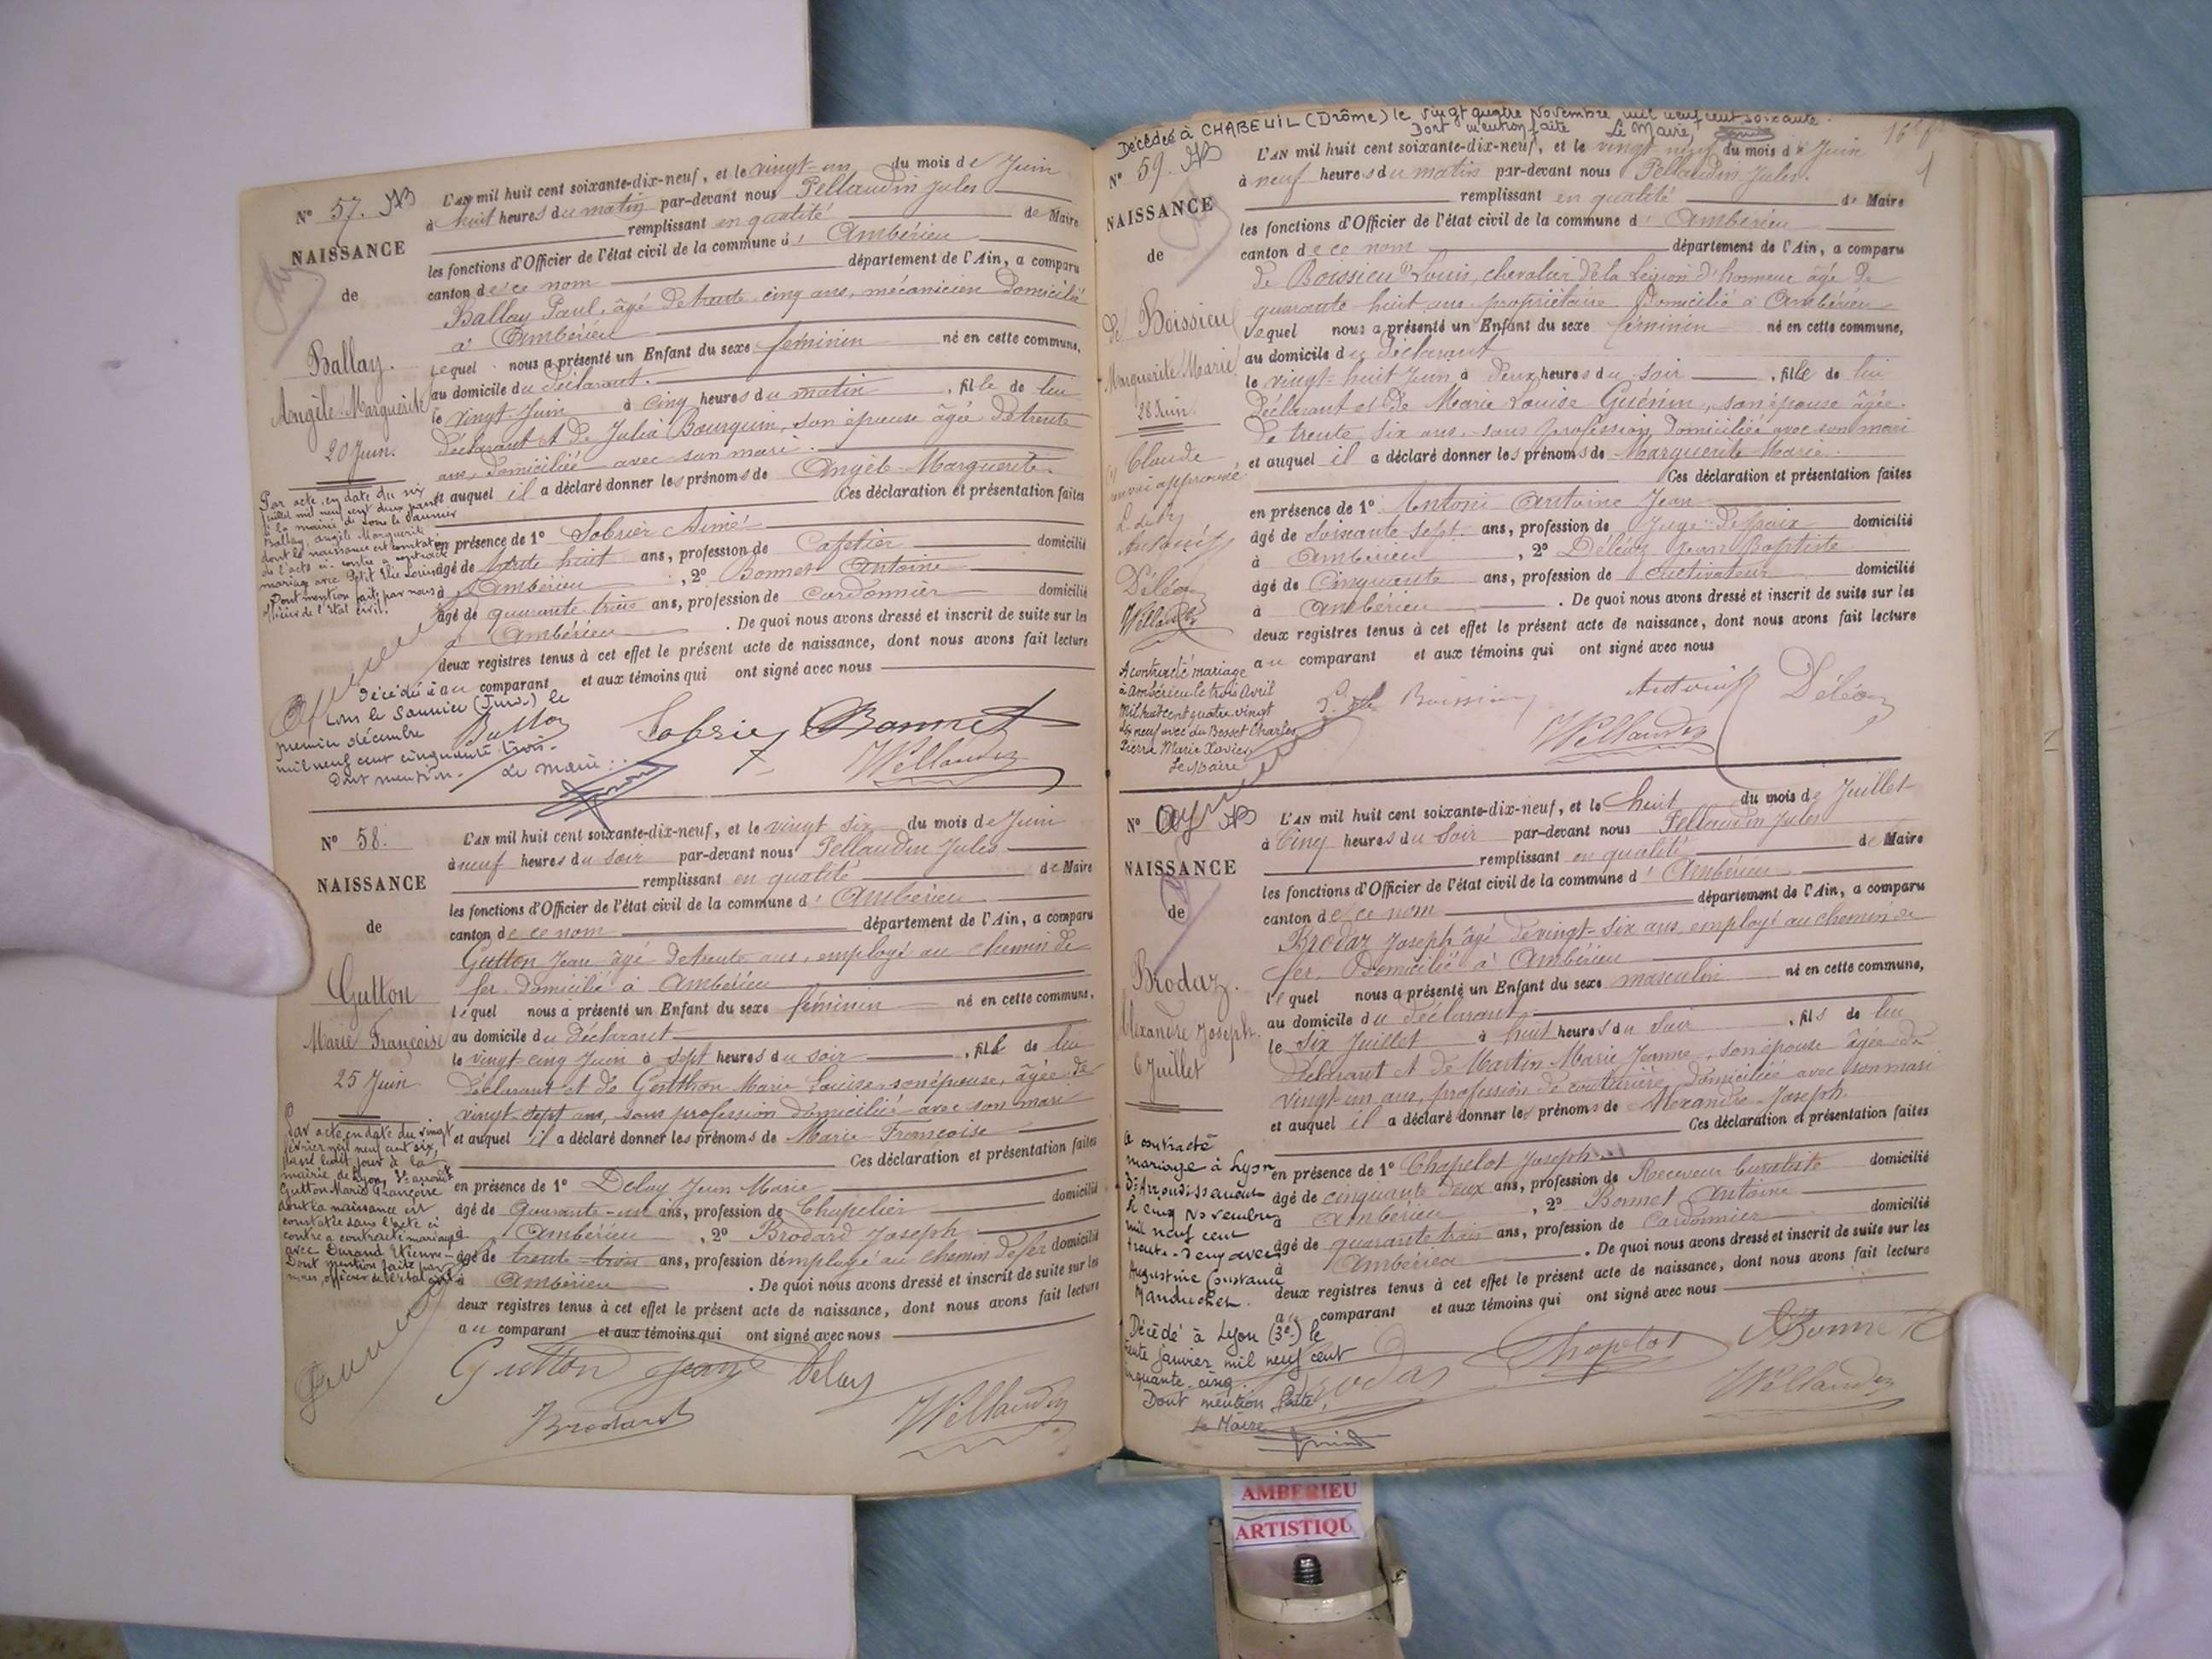 N° 57.
NAISSANCE
de
Ballay.
Angèle Marguerite
20 Juin.
L'AN mil huit cent soixante-dix-neuf, et le vingt-un du mois de Juin
à huit heures du matin par-devant nous Pellaudin Jules
remplissant en qualité de Maire
les fonctions d'Officier de l'état civil de la commune d' Ambérieu
canton de ce nom département de l'Ain, a comparu
Ballay Paul, âgé de trente cinq ans, mécanicien domicilié
à Ambérieu
lequel nous a présenté un Enfant du sexe féminin né en cette commune,
au domicile du déclarant.
le vingt Juin à cinq heures du matin, fille de lui
déclarant et de Julia Bourguin, son épouse âgée de trente
ans, domiciliée avec son mari.
et auquel il a déclaré donner les prénoms de Angèle Marguerite.
Ces déclaration et présentation faites
en présence de 1° Sobrier Aimé
âgé de trente huit ans, profession de Cafetier domicilié
à Ambérieu, 2° Bonnet Antoine
âgé de quarante trois ans, profession de Cordonnier domicilié
à Ambérieu. De quoi nous avons dressé et inscrit de suite sur les
deux registres tenus à cet effet le présent acte de naissance, dont nous avons fait lecture
au comparant et aux témoins qui ont signé avec nous
Par acte en date du six
juillet mil neuf cent deux passé
à la mairie de Lons le Saunier
Ballay, Angèle Marguerite
dont la naissance est constatée
de l'acte ci-contre a contracté
mariage avec Petit Elie Louis
Dont mention faite par nous
officier de l'état civil.
Décédée à
Lons le Saunier (Jura) le
premier décembre
mil neuf cent cinquante trois.
Dont mention. Le Maire:
Sobrier Bonnet
Pellaudin
N° 58.
NAISSANCE
de
Gutton
Marie Françoise
25 Juin
L'AN mil huit cent soixante-dix-neuf, et le vingt six du mois de Juin
à neuf heures du soir par-devant nous Pellaudin Jules
remplissant en qualité de Maire
les fonctions d'Officier de l'état civil de la commune d' Ambérieu
canton de ce nom département de l'Ain, a comparu
Gutton Jean âgé de trente ans, employé au chemin de
fer domicilié à Ambérieu
lequel nous a présenté un Enfant du sexe féminin né en cette commune,
au domicile du Déclarant
le vingt-cinq Juin à sept heures du soir, fille de lui
déclarant et de Genthon Marie Louise son épouse, âgée de
vingt-sept ans, sans profession domiciliée avec son mari
et auquel il a déclaré donner les prénoms de Marie-Françoise
Ces déclaration et présentation faites
en présence de 1° Delay Jean Marie
âgé de Quarante-un ans, profession de Chapelier domicilié
à Ambérieu, 2° Brodard Joseph
âgé de trente-trois ans, profession d'employé au chemin de fer domicilié
à Ambérieu. De quoi nous avons dressé et inscrit de suite sur les
deux registres tenus à cet effet le présent acte de naissance, dont nous avons fait lecture
au comparant et aux témoins qui ont signé avec nous
Par acte en date du vingt
février mil neuf cent six,
passé
mairie de Lyon, arrondt
Gutton Marie Françoise
dont la naissance est
constatée dans l'acte ci
contre a contracté mariage
avec Durand Etienne
Dont mention faite par
nous, officier de l'état civil
Gutton Jean Delay
Brodard Pellaudin
Décédée à CHABEUIL (Drôme) le vingt quatre Novembre mil neuf cent soixante.
Dont mention faite Le Maire,
N° 59.
NAISSANCE
de
de Boissieu
Marguerite Marie
28 Juin
Claude
renvoi approuvé
Déléaz
Pellaudin
L'AN mil huit cent soixante-dix-neuf, et le vingt neuf du mois de Juin
à neuf heures du matin par-devant nous Pellaudin Jules.
remplissant en qualité de Maire
les fonctions d'Officier de l'état civil de la commune d' Ambérieu
canton de ce nom département de l'Ain, a comparu
de Boissieu Louis, chevalier de la Légion d'honneur âgé de
quarante huit ans propriétaire domicilié à Ambérieu
lequel nous a présenté un Enfant du sexe féminin né en cette commune,
au domicile du déclarant
le vingt-huit Juin à deux heures du soir, fille de lui
déclarant et de Marie Louise Guénin, son épouse âgée
de trente six ans, sans profession, domiciliée avec son mari
et auquel il a déclaré donner les prénoms de Marguerite Marie
Ces déclaration et présentation faites
en présence de 1° Antoni Antoine Jean
âgé de soixante sept ans, profession de Juge de paix domicilié
à Ambérieu, 2° Déléaz Jean Baptiste
âgé de Cinquante ans, profession de cultivateur domicilié
à Ambérieu. De quoi nous avons dressé et inscrit de suite sur les
deux registres tenus à cet effet le présent acte de naissance, dont nous avons fait lecture
au comparant et aux témoins qui ont signé avec nous
A contracté mariage
à Ambérieu le trois Avril
Mil huit cent quatre-vingt
dix neuf avec du Besset Charles
Pierre Marie Xavier
Le Maire
Déléaz
Pellaudin
N°
NAISSANCE
de
Brodaz.
Alexandre Joseph.
6 Juillet
L'AN mil huit cent soixante-dix-neuf, et le huit du mois de Juillet
à Cinq heures du soir par-devant nous Pellaudin Jules
remplissant en qualité de Maire
les fonctions d'Officier de l'état civil de la commune d' Ambérieu
canton de ce nom département de l'Ain, a comparu
Brodaz Joseph âgé de vingt-six ans employé au chemin de
fer. Domicilié à Ambérieu
lequel nous a présenté un Enfant du sexe masculin né en cette commune,
au domicile du déclarant
le six Juillet à huit heures du soir, fils de lui
déclarant et de Martin Marie Jeanne, son épouse âgée de
vingt-un ans, profession de couturière, domiciliée avec son mari
et auquel il a déclaré donner les prénoms de Alexandre-Joseph
Ces déclaration et présentation faites
en présence de 1° Chapelot Joseph
âgé de cinquante deux ans, profession de Receveur buraliste domicilié
à Ambérieu, 2° Bonnet Antoine
âgé de quarante trois ans, profession de Cordonnier domicilié
à Ambérieu. De quoi nous avons dressé et inscrit de suite sur les
deux registres tenus à cet effet le présent acte de naissance, dont nous avons fait lecture
au comparant et aux témoins qui ont signé avec nous
A contracté
mariage à Lyon
3e Arrondissement
le cinq Novembre
mil neuf cent
trente-deux avec
Augustine Constance
Manduchet.
Décédé à Lyon (3e.) le
trente janvier mil neuf cent
cinquante cinq.
Dont mention faite,
Le Maire
Brodaz Chapelot Bonnet
Pellaudin
AMBERIEU
ARTISTIQU